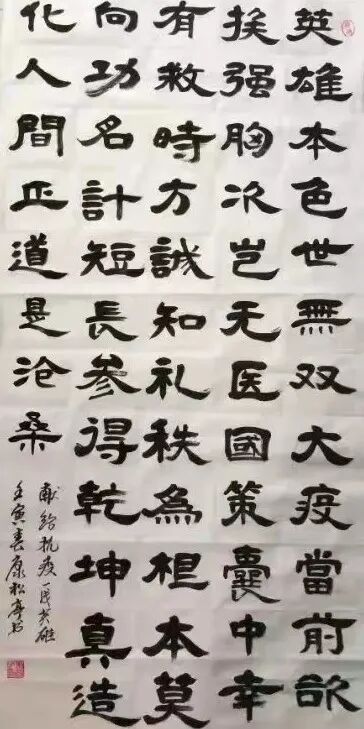 英雄本色世無双大疫當前欲
挨强胸次岂无医國策囊中幸
有救時方誠知礼秩為根本莫
向功名計短長参得乾坤真造
化人間正道是沧桑
献给抗疫英雄
壬寅春康松亭书